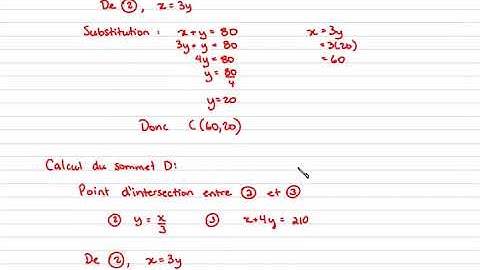 De ②, x = 3y
Substitution : x + y = 80 x = 3y
3y + y = 80 = 3(20)
4y = 80 = 60
y = 80/4
y = 20
Donc C(60,20)
Calcul du sommet D:
Point d'intersection entre ② et ③
② y = x/3 ③ x + 4y = 210
De ②, x = 3y